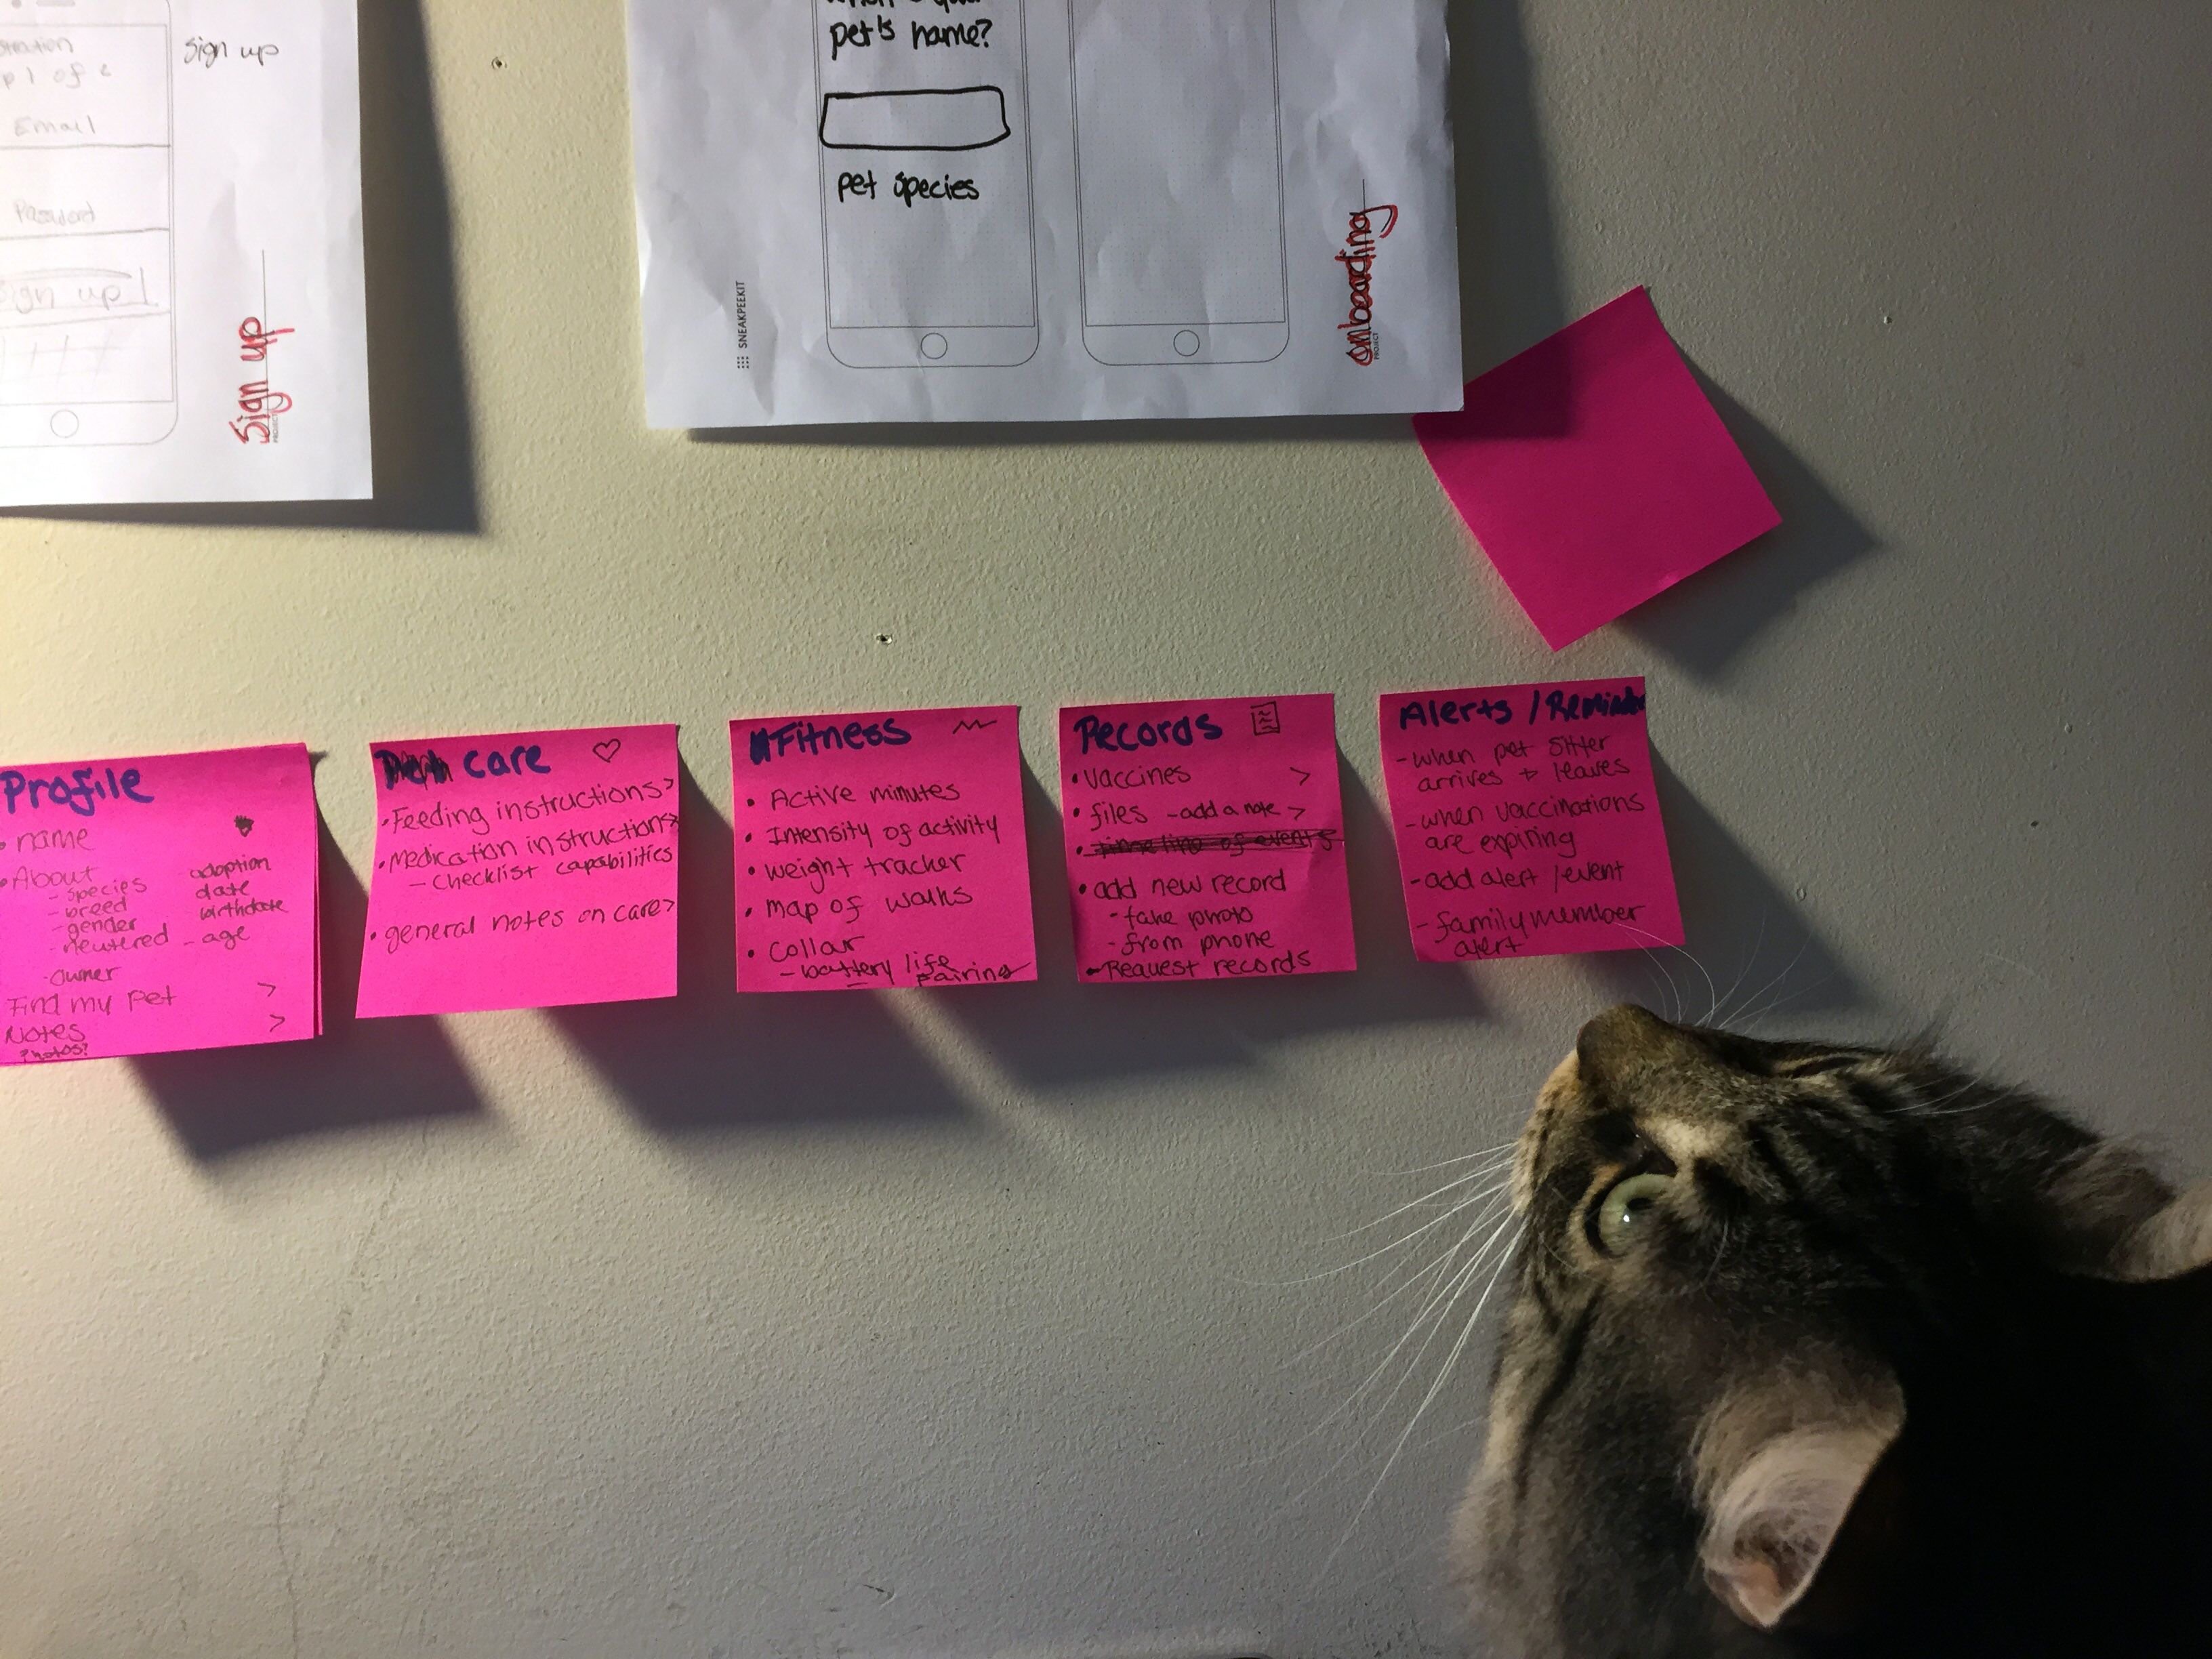 Sign up
Email
Password
Sign up
Sign up
PROJECT
pet's name?
pet species
SNEAKPEEKIT
onboarding
PROJECT
Profile
• name
• About
- species
- breed
- gender
- neutered
- owner
adoption
date
birthdate
- age
Find my pet >
Notes >
Photos?
care
• Feeding instructions >
• Medication instructions >
- checklist capabilities
• general notes on care >
Fitness
• Active minutes
• Intensity of activity
• weight tracker
• map of walks
• collar
- battery life
pairing
Records
• vaccines >
• files - add a note >
• timeline of events
• add new record
- take photo
- from phone
- Request records
Alerts / Reminder
- when pet sitter
arrives + leaves
- when vaccinations
are expiring
- add alert / event
- family member
alert